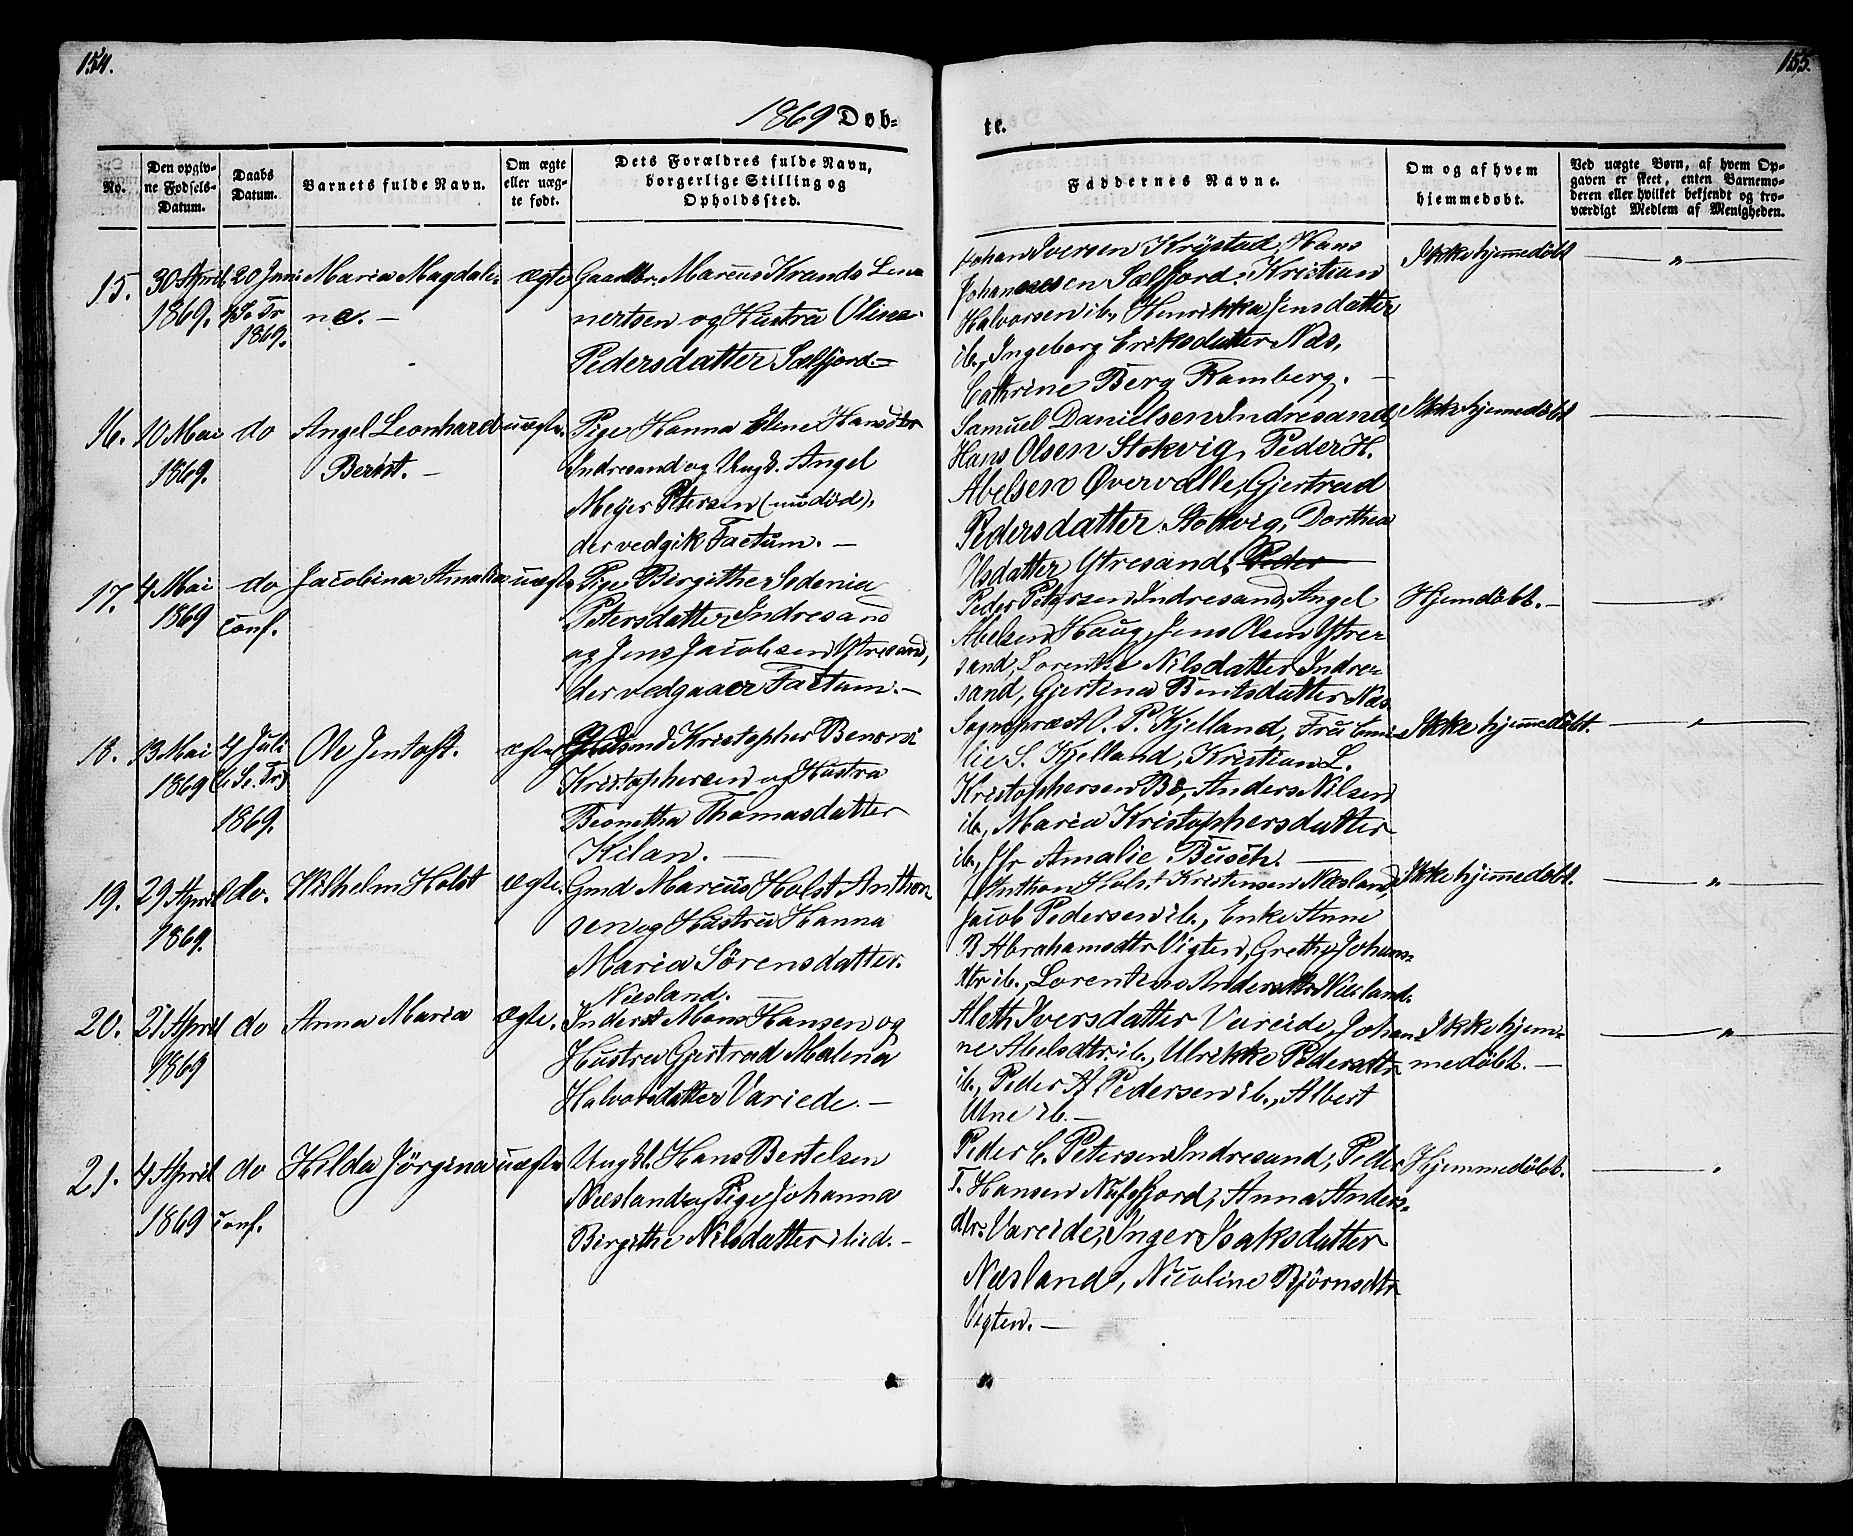 154.
1869 Døb-
No.
Den opgiv-
ne Fødsels-
Datum.
Daabs
Datum.
Barnets fulde Navn.
Om ægte
eller uæg-
te født.
Dets Forældres fulde Navn,
borgerlige Stilling og
Opholdssted.
15.
30 April
1869.
20 Juni
1869.
Maria Magdale-
ne. -
ægte
Gaardbr. Marcus Krands Len-
nertsen og Hustru Oline
Pedersdatter Sælfjord.-
16.
10 Mai
1869.
do
Angel Leonhard
Berist. -
uægte.
Pige Hanna Elene Hansdtr
Indresand og Ungk. Angel
Meyer Petersen (nu død),
der vedgik Factum. -
17.
4 Mai
1869
do
conf.
Jacobina Amalia
uægte
Pige Birgithe Sedenia
Petersdatter Indresand
og Jens Jacobsen Ytresand,
der vedgaaer Factum. -
18.
13 Mai
1869
4 Juli
(6 S. Tr)
1869.
Ole Jentoft.
ægte
Kristopher Benoni
Kristophersen og Hustru
Beonetha Thomasdatter
Kilan. -
19.
29 April
1869.
do.
Wilhelm Holst
ægte.
Gmd Marcus Holst Anthon-
sen og Hustru Hanna
Maria Sørensdatter.
Næsland.
20.
21 April
1869
do
Anna Maria
ægte.
Inderst Mons Hansen og
Hustru Gjertrud Malena
Halvorsdatter Variede. -
21.
4 April
1869
do
conf.
Hilda Jørgina
uægte
Ungkl. Hans Bertelsen
Næsland og Pige Johanna
Birgithe Nilsdatter ibid. -
155.
te.
Faddernes Navne.
Om og af hvem
hjemmedøbt.
Ved uægte Børn, af hvem Op-
gaven er skeet, enten Barnemo-
deren eller hvilket bekjendt og tro-
værdigt Medlem af Menigheden.
Johan Iversen Krystad, Hans
Johannesen Sælfjord, Kristian
Halvorsen ib., Henrikka Jensdatter
ib., Ingeborg Eriksdatter Næs,
Cathrine Berg Ramberg. -
Ikke hjemmedøbt
— „ —
Samuel Danielsen Indresand,
Hans Olsen Stokvig, Peder H.
Abelsen Øvervolle, Gjertrud
Pedersdatter Stokvig, Dorthea
Ilsdatter Ytresand, Peder
Ikke hjemmedøbt
— „ —
Peder Petersen Indresand, Angel
Abelsen Haug, Jens Olsen Ytre-
sand, Lorentze Nilsdatter Indre-
sand, Gjertina Bentsdatter Næs
Hjemdøbt. -
— „
Sognepræst O. P. Kjelland, Fru Emi-
lie S. Kjelland, Kristian L.
Kristophersen Bø, Anders Nilsen
ib., Maria Kristophersdatter
ib., Jfr Amalie Busch. —
Ikke hjemmedøbt.
— „ —
Anthon Holst Kristensen Næsland,
Jacob Pedersen ib., Enke Anne
B Abrahamsdtr Vigten, Grethe Johans-
dtr ib., Lorentens Andersdtr Næsland.
Ikke hjemmedøbt.
— „ —
Aleth Iversdatter Vareide, Johan-
ne Abelsdtr ib., Ulrikke Pedersdtr
ib., Peder A. Pedersen ib., Albert
Ulne ib. -
Ikke hjem-
medøbt. —
— „ —
Peder C. Petersen Indresand, Peder
T. Hansen Nufsfjord, Anna Anders-
dtr. Vareide, Inger Isaksdatter
Næsland, Nicoline Bjørnsdtr
Vigten. -
Hjemmedøbt.
— „